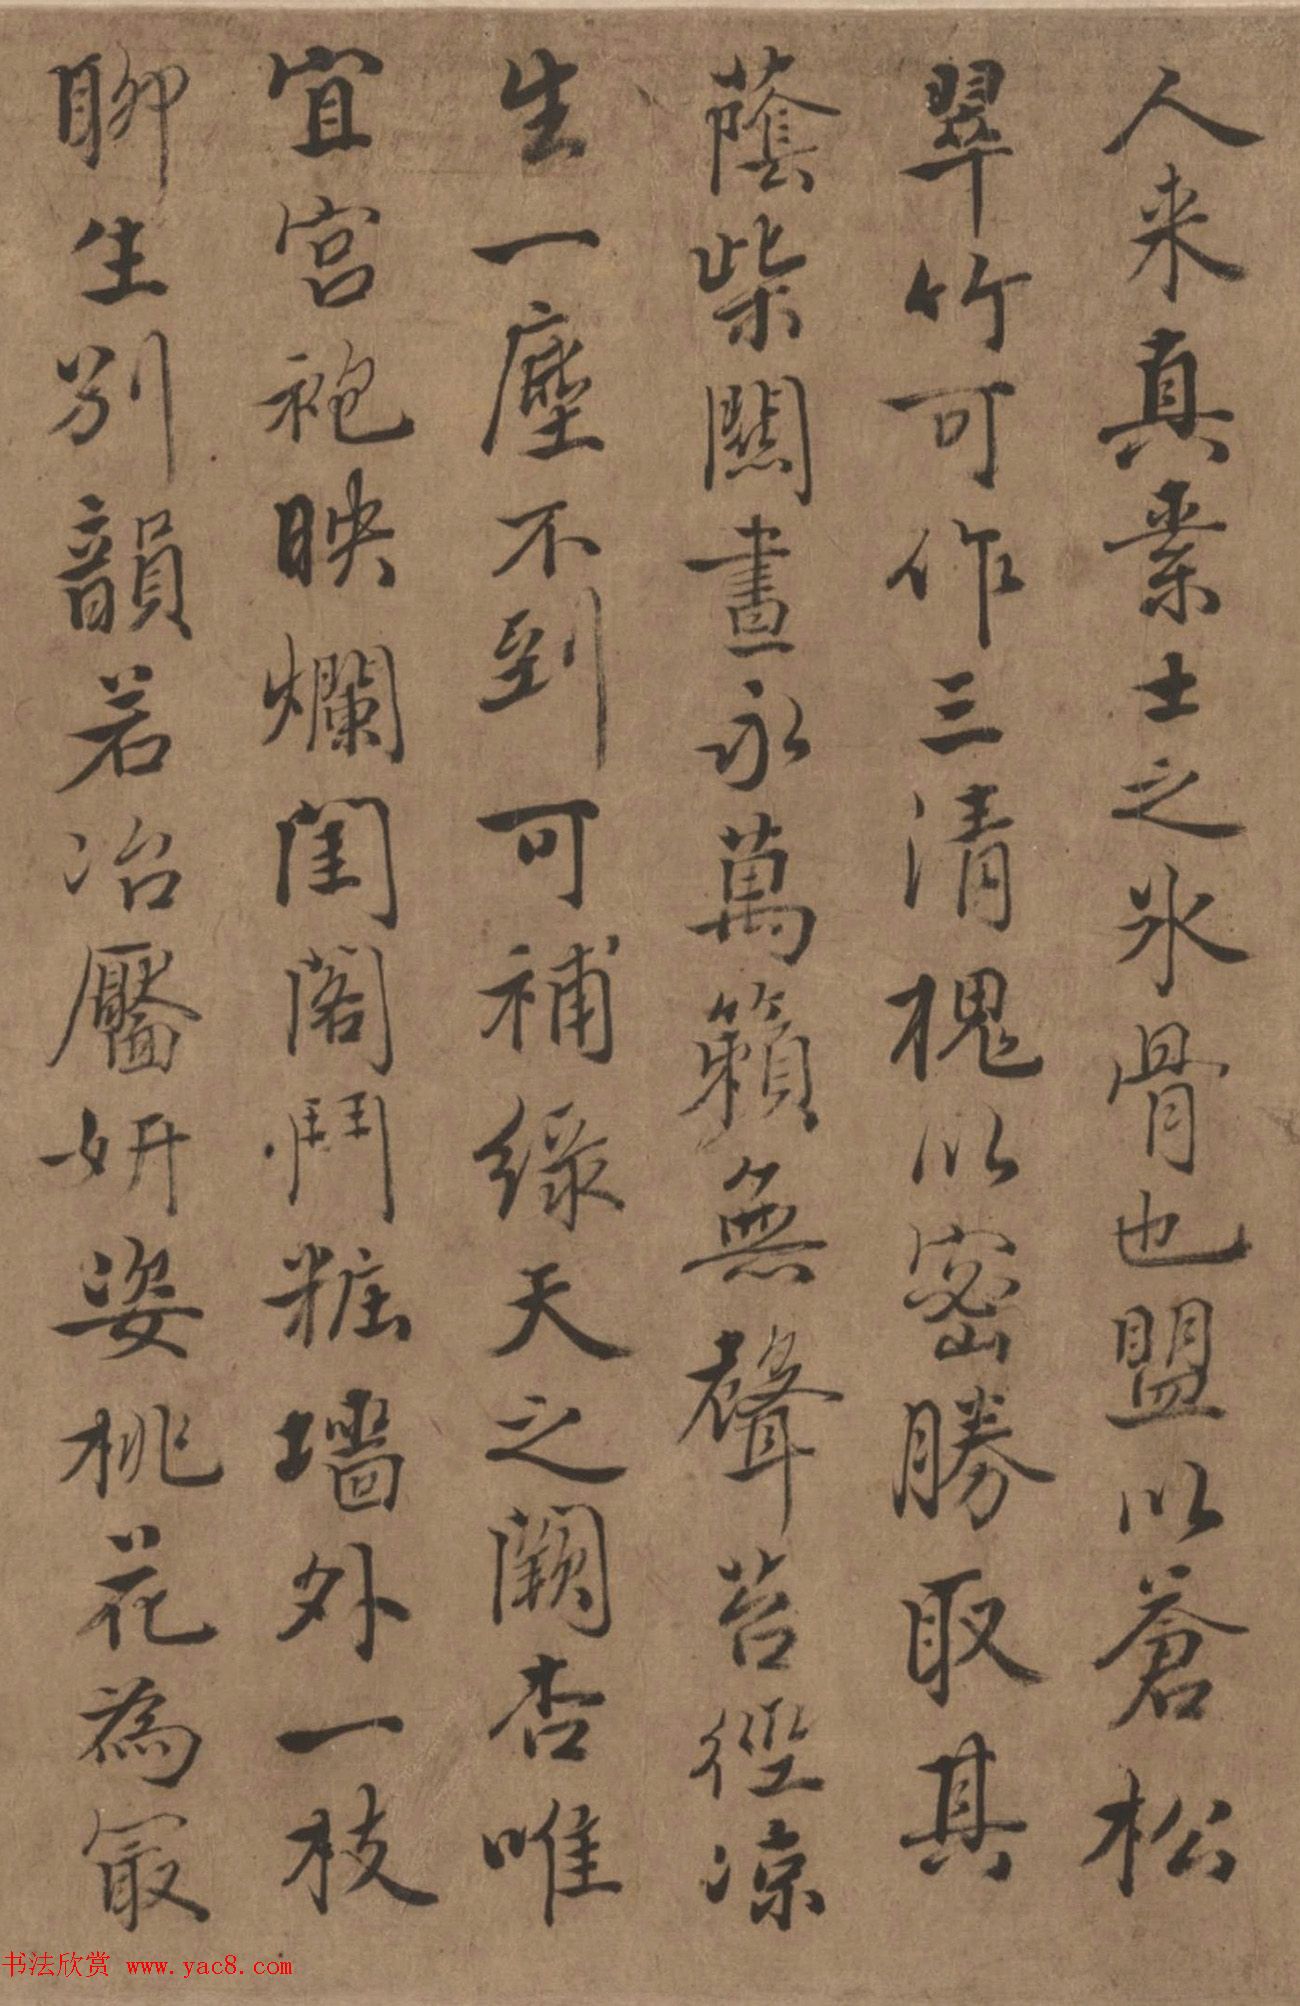 人来真素士之氷骨也盟以蒼松
翠竹可作三清槐以密勝取其
蔭柴關晝永萬籟無聲苔徑凉
生一塵不到可補緑天之闕杏唯
宜宮袍映爛閨閣鬥粧墻外一枝
聊生别韻若冶靨妍姿桃花為冣
书法欣赏 www.yac8.com